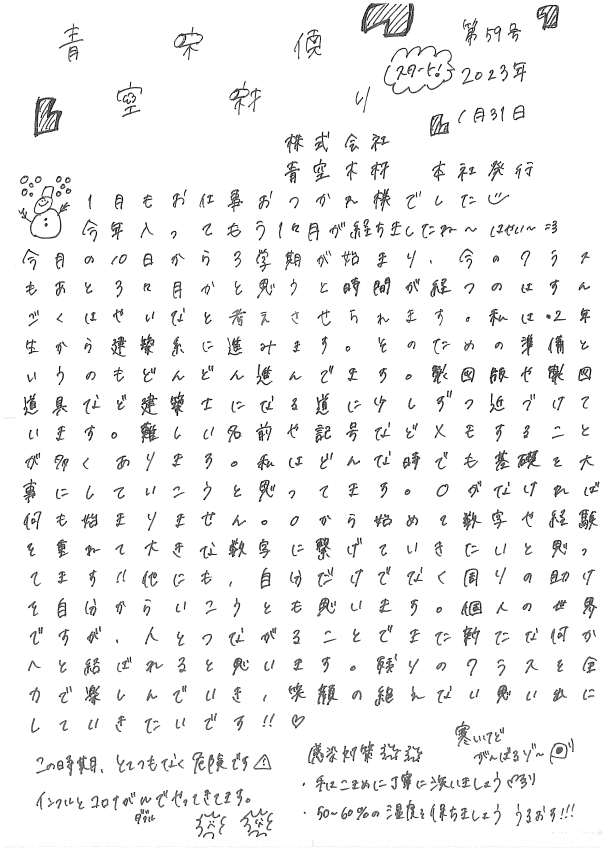 青木便
空材り
スタート!
第59号
2023年
1月31日
株式会社
青空木材 本社発行
1月もお仕事おつかれ様でした
今年入ってもう1ヶ月が経ちましたね〜 はやい〜
今月の10日から3学期が始まり、今のクラス
もあと3ヶ月かと思うと時間が経つのはすん
ごくはやいなと考えさせられます。私は。2年
生から建築系に進みます。そのための準備と
いうのもどんどん進んでます。製図版や製図
道具など建築士になる道に少しずつ近づけて
います。難しい名前や記号などメモすること
が多くあります。私はどんな時でも基礎を大
事にしていこうと思ってます。0がなければ
何も始まりません。0から始めて数字や経験
を重ねて大きな数字に繋げていきたいと思っ
てます!!他にも、自分だけでなく周りの助け
を自分からいこうとも思います。個人の世界
ですが、人とつながることでまた新たな何か
へと結ばれると思います。残りのクラスを全
力で楽しんでいき、笑顔の絶えない思い出に
していきたいです!!♡
この時期、とてつもなく危険です⚠
インフルとコロナがWでやってきてます。
ダブル
感染対策
・手はこまめに丁寧に洗いましょう
・50〜60%の湿度を保ちましょう うるおす!!!
寒いけど
がんばるゾ〜